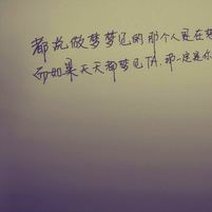 都说做梦梦见的那个人是在想
而如果天天都梦见TA.那一定是你